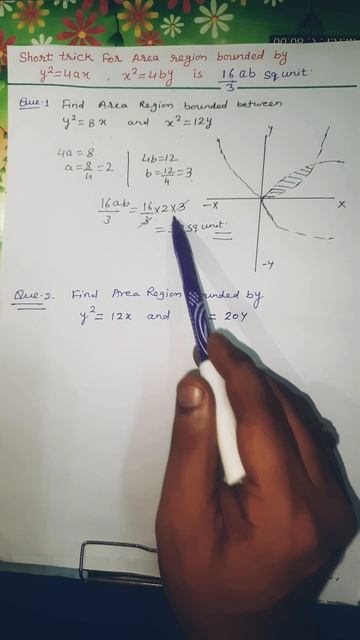 Short trick For Area region bounded by
y²=4ax, x²=4by is 16/3 ab sq unit.
Que:1 Find Area Region bounded between
y²=8x and x²=12y
4a=8 4b=12
a=8/4=2 b=12/4=3
16ab/3 = 16/3×2×3
= sq unit.
y
-X X
-Y
Que:2. Find Area Region by
y²=12x and = 20y